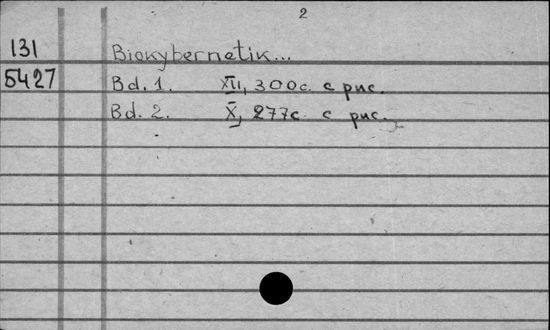 2
131 Biokybernetik...
5427 Bd. 1. XII, 300с. с рис.
Bd. 2. X, 277с с рис.